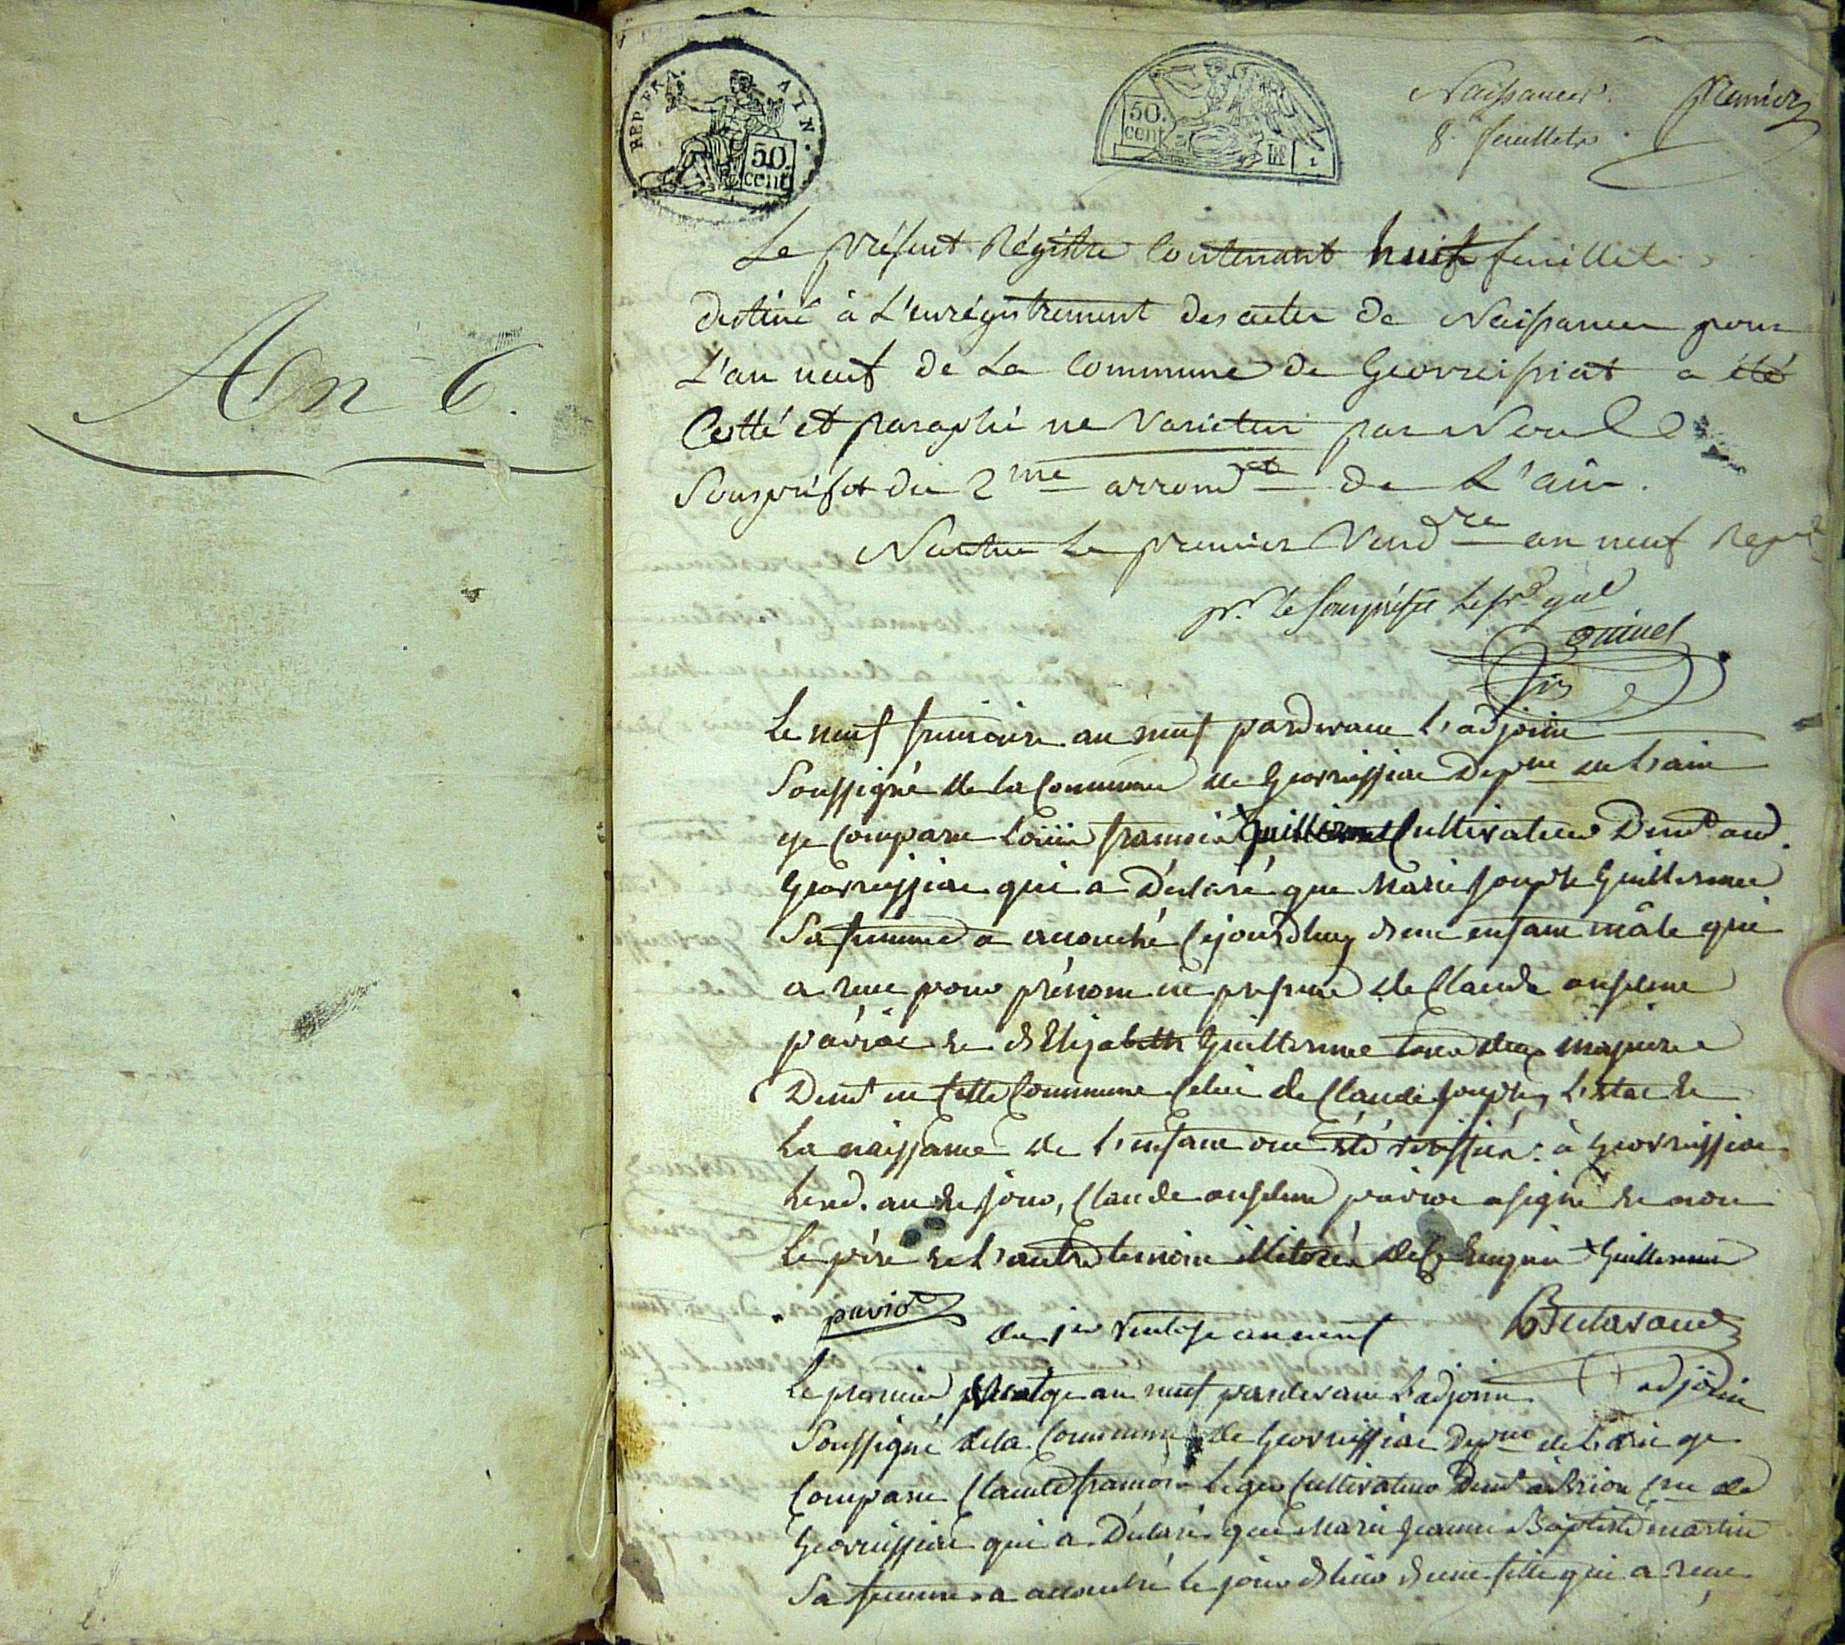 An 6.
REP. FRA. ATIN.
50. cent
50. cent
Naissances. premier
8. feuillets
Le présent Régistre Contenant huit feuillets
destiné à L'enrégistrement des actes de Naissances pour
L'an neuf de La Commune de Geovreissiat a été
Cotté et paraphé ne Varietur par Nous
Sousprefet du 2me arrondt de L'ain.
Nantua Le premier Vendre an neuf Repu
pr. le Sousprefet
Le neuf frimaire an neuf pardevant L'adjoint
Soussigné de la Commune de Geovreissiat Depme de L'ain
est Comparu Louis françois Guillermet Cultivateur Demt aud.
Geovreissiat qui a Déclaré que Marie Joseph Guillerme
Sa femme a accouché Cejourdhuy d'un enfant mâle qui
a reçu pour prénom en présence de Claude anselme
paviot et d'Elizabeth Guillerme tous deux majeurs
Demt en Cette Commune Celui de Claude Joseph, L'état et
La naissance de L'enfant ont été vérifiés. à Geovreissiat
Led. an et jour, Claude anselme paviot a signé et non
Le père et L'autre temoin illitérés de Ce enquis Guillerme
paviot
du 1er Ventose an neuf
adjoint
Le premier Ventose an neuf pardevant L'adjoint
Soussigné de la Commune de Geovreissiat Depme de L'ain est
Comparu Claude françois Leger Cultivateur Demt à Crion Cne de
Geovreissiat qui a Déclaré que Marie Jeanne Baptiste martin
Sa femme a accouché le jour d'hier d'une fille qui a reçu